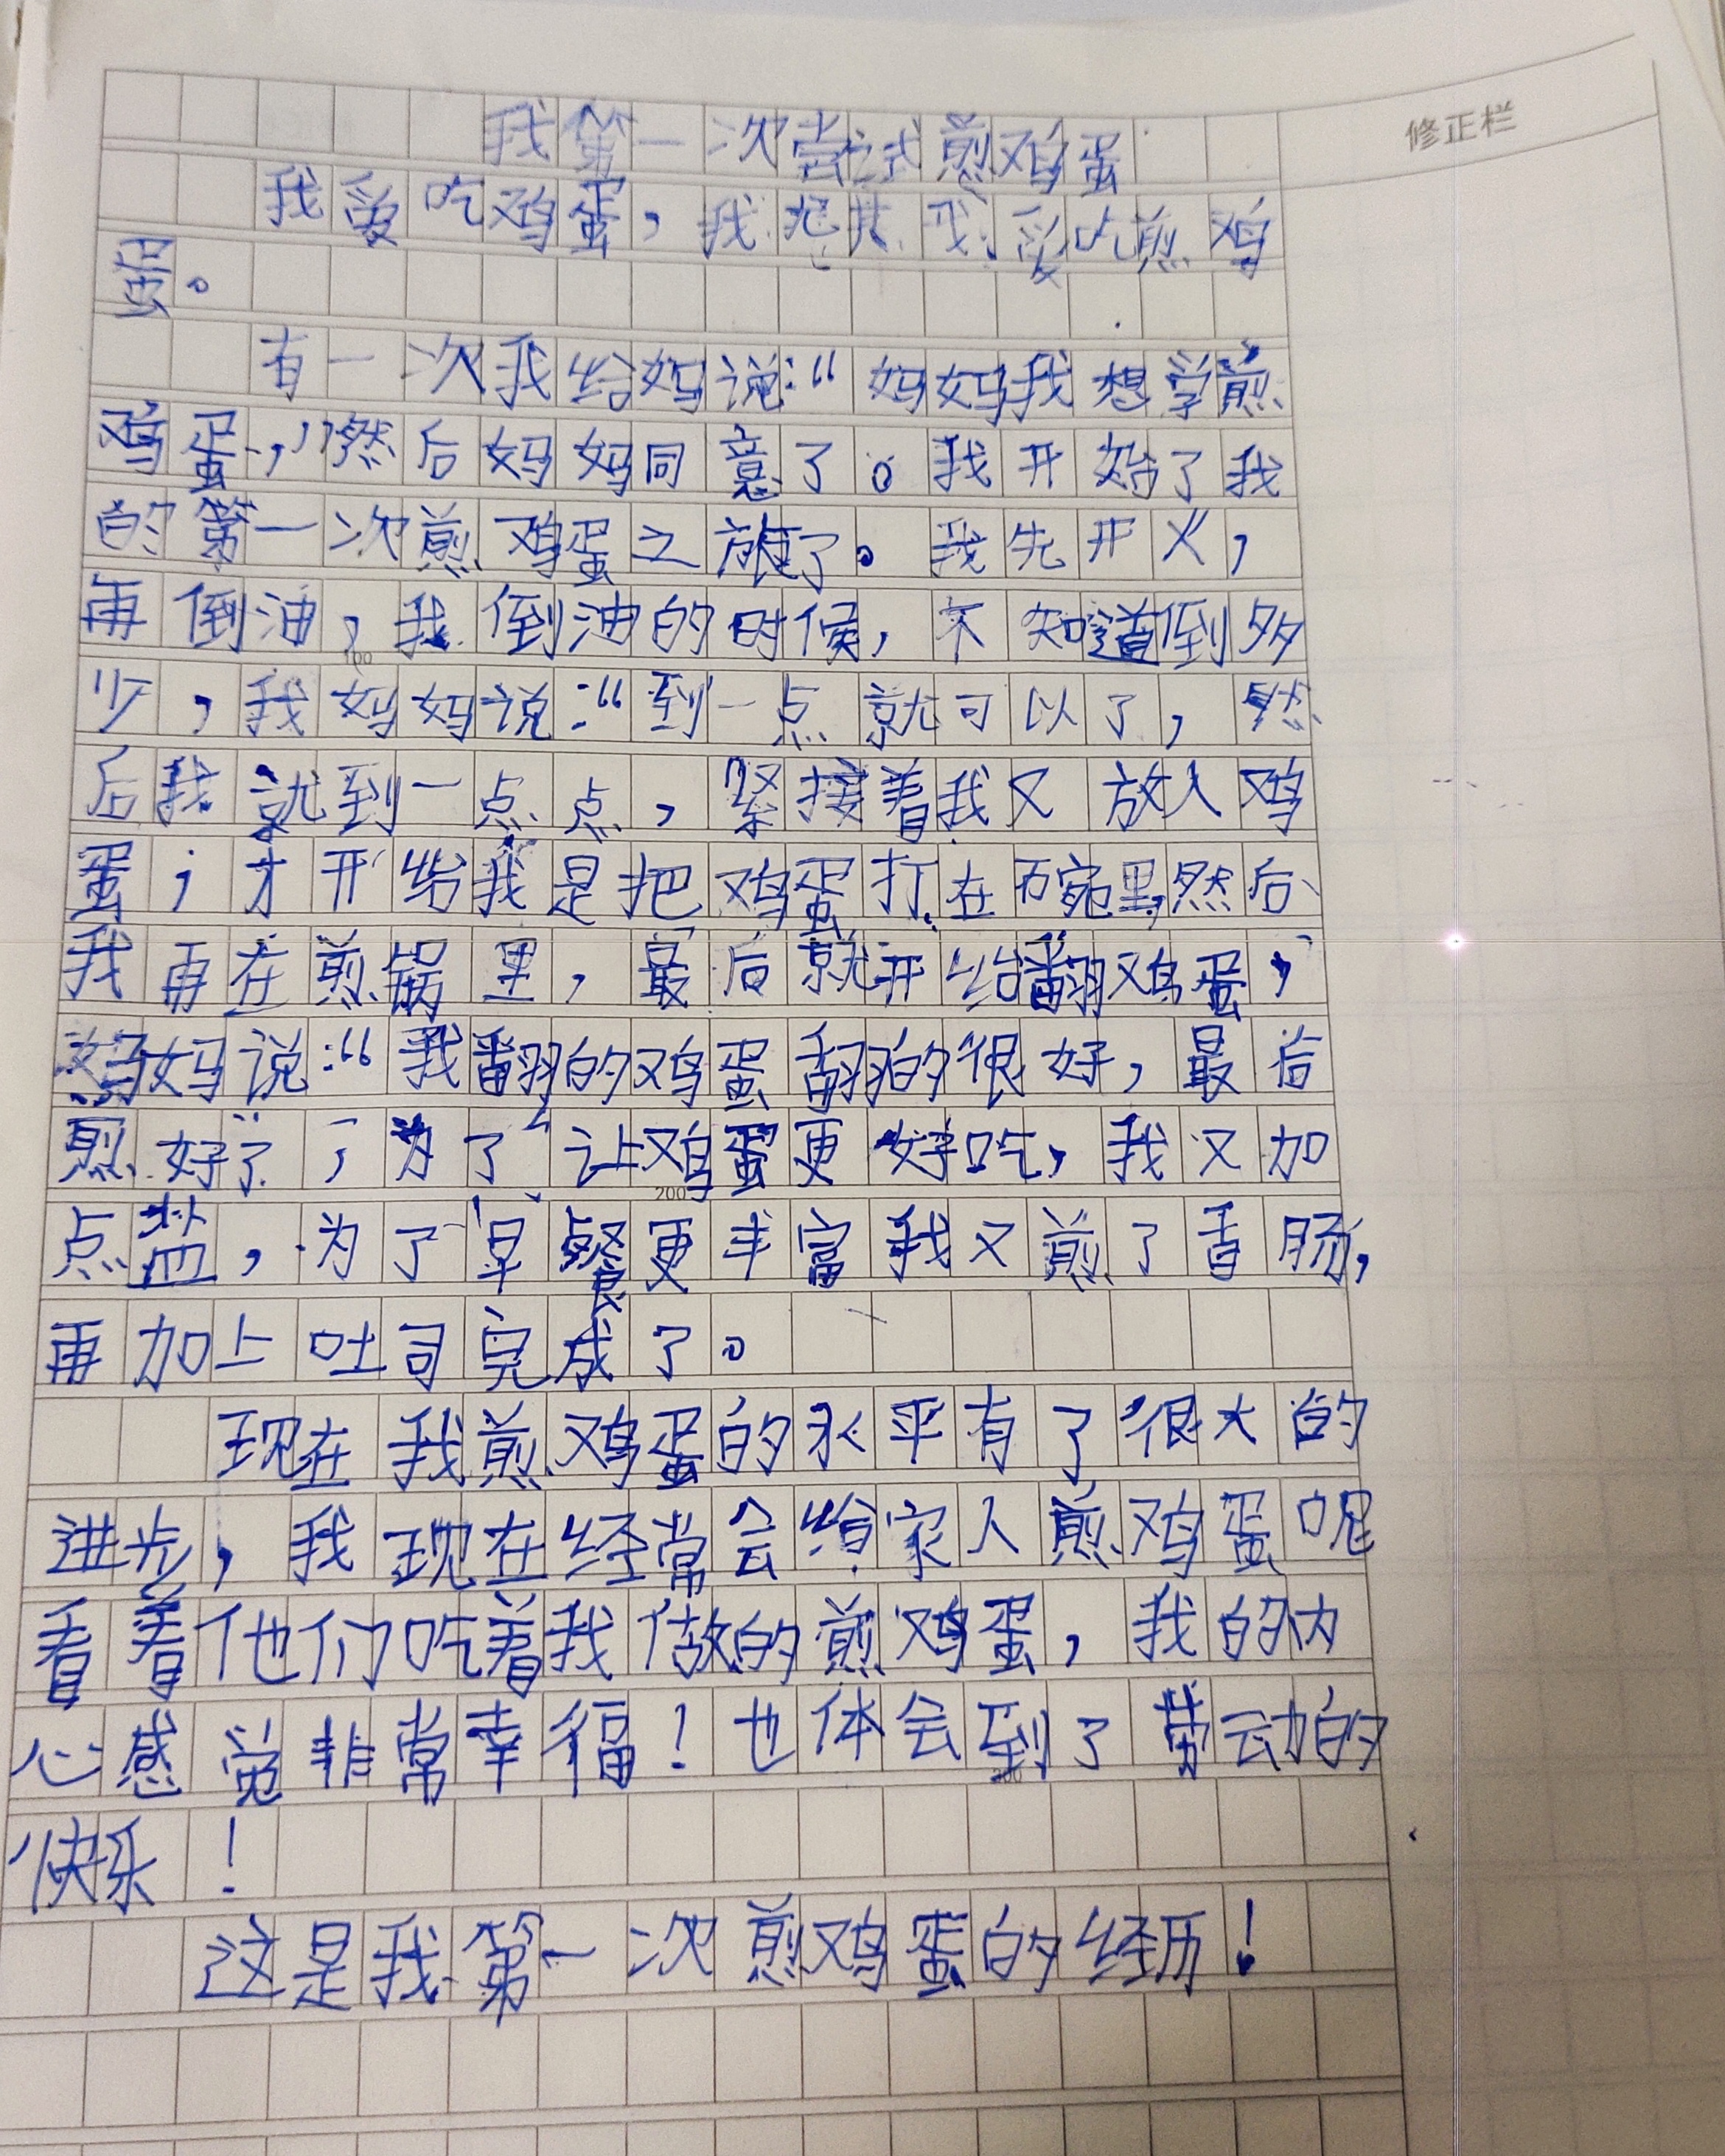 修正栏
我第一次尝试煎鸡蛋
我爱吃鸡蛋，我尤其我爱吃煎鸡
蛋。
有一次我给妈说：“妈妈我想学煎
鸡蛋，”然后妈妈同意了。我开始了我
的第一次煎鸡蛋之旅了。我先开火，
再倒油，我倒油的时候，不知道倒多
少，我妈妈说：“到一点就可以了，然
后我就到一点点，紧接着我又放入鸡
蛋；才开始我是把鸡蛋打在碗里，然后
我再在煎锅里，最后就开始翻鸡蛋，
妈妈说：“我翻的鸡蛋翻的很好，最后
煎好了，为了让鸡蛋更好吃，我又加
点盐，为了早餐更丰富我又煎了香肠，
再加上吐司完成了。
现在我煎鸡蛋的水平有了很大的
进步，我现在经常会给家人煎鸡蛋呢
看着他们吃着我做的煎鸡蛋，我的内
心感觉非常幸福！也体会到了劳动的
快乐！
这是我第一次煎鸡蛋的经历！
100
200
300